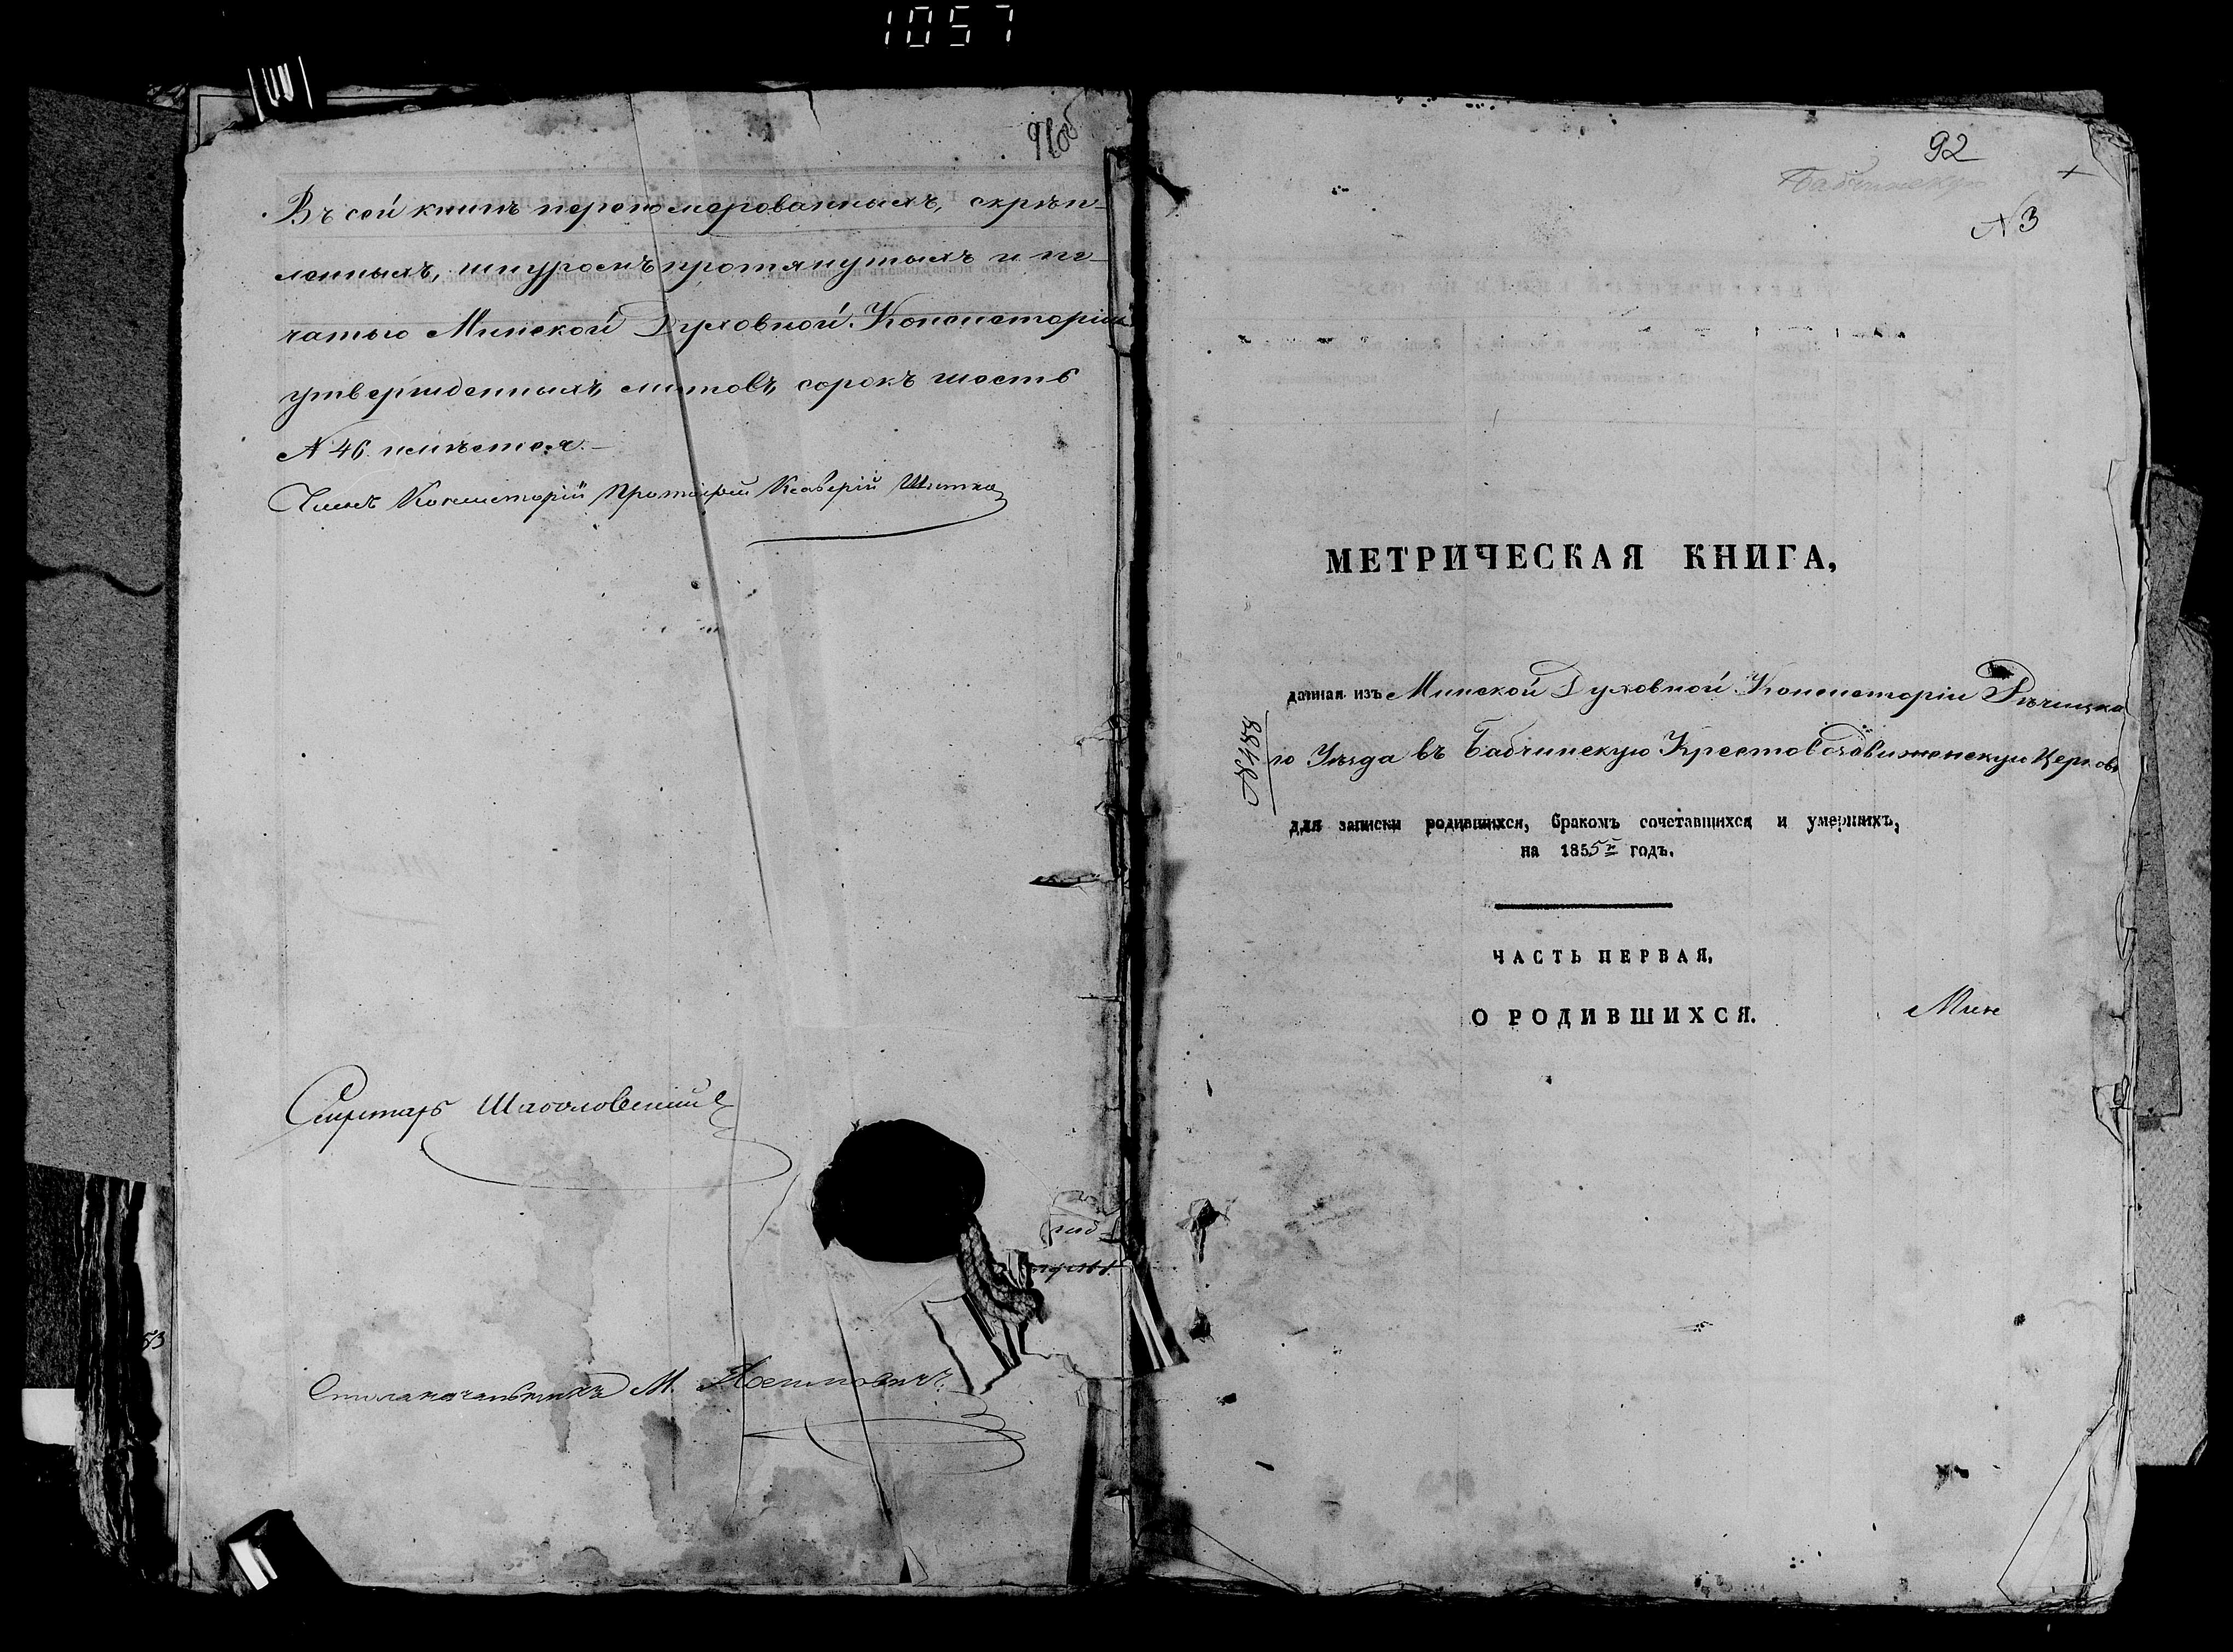 1057
91об
Въ сей книгѣ перономерованныхъ, скрѣп-
ленныхъ, шнуромъ протянутыхъ и пе-
чатью Минской Духовной Консисторіи
утвержденныхъ листовъ сорокъ шесть
№ 46. имѣется.
Членъ Консисторіи Протоіерей Ксаверій
Секретарь
Столоначальникъ М.
53
92
Бабчинскую
№3
МЕТРИЧЕСКАЯ КНИГА,
данная изъ Минской Духовной Консисторіи Рѣчицка
го Уѣзда въ Бабчинскую Крестовоздвиженскую Церковь
№ 488
для записки родившихся, бракомъ сочетавшихся и умершихъ,
на 1855й годъ.
ЧАСТЬ ПЕРВАЯ,
О РОДИВШИХСЯ.
Мин